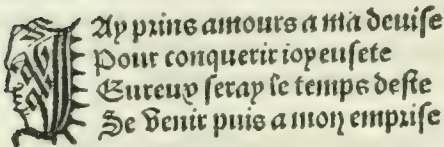 JAy prins amours a ma devise
Pour conquerir ioyeusete
Eureux seray se temps deste
Se venir puis a mon emprise